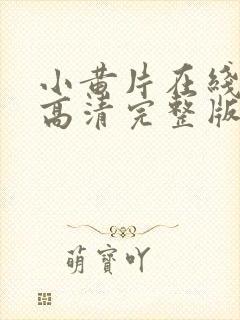 小黄片在线
高清完整版
萌宝吖